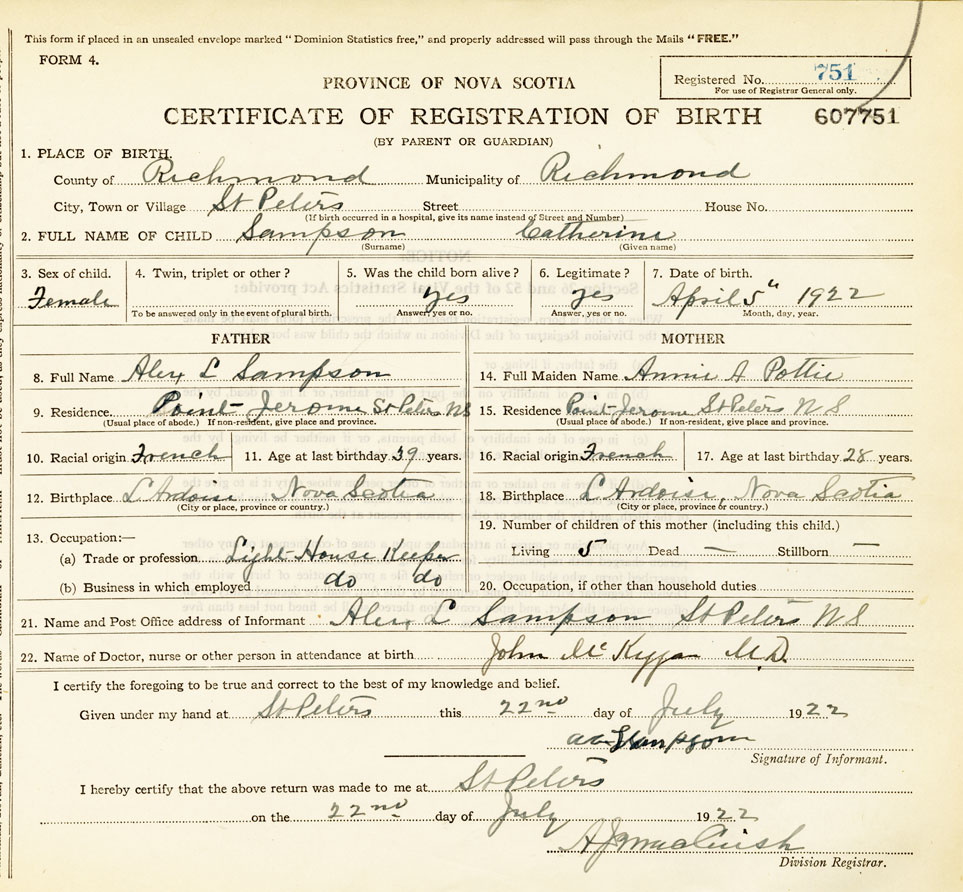 This form if placed in an unsealed envelope marked "Dominion Statistics free," and properly addressed will pass through the Mails "FREE."
FORM 4.
Registered No. 751
For use of Registrar General only.
PROVINCE OF NOVA SCOTIA
CERTIFICATE OF REGISTRATION OF BIRTH 607751
(BY PARENT OR GUARDIAN)
1. PLACE OF BIRTH.
County of Richmond Municipality of Richmond
City, Town or Village St Peters Street House No.
(If birth occurred in a hospital, give its name instead of Street and Number)
2. FULL NAME OF CHILD Sampson Catherine
(Surname) (Given name)
3. Sex of child. 4. Twin, triplet or other? 5. Was the child born alive? 6. Legitimate? 7. Date of birth.
Female yes yes April 5th 1922
To be answered only in the event of plural birth. Answer, yes or no. Answer, yes or no. Month, day, year.
FATHER MOTHER
8. Full Name Alex L Sampson 14. Full Maiden Name Annie A Pottie
9. Residence. Point Jerome St Peters NS 15. Residence Point Jerome St Peters N S
(Usual place of abode.) If non-resident, give place and province. (Usual place of abode.) If non-resident, give place and province.
10. Racial origin French 11. Age at last birthday 39 years. 16. Racial origin French 17. Age at last birthday 28 years.
12. Birthplace L'Ardoise Nova Scotia 18. Birthplace L'Ardoise, Nova Scotia
(City or place, province or country.) (City or place, province or country.)
19. Number of children of this mother (including this child.)
13. Occupation:—
(a) Trade or profession Light House Keeper Living 5 Dead — Stillborn —
(b) Business in which employed do do 20. Occupation, if other than household duties
21. Name and Post Office address of Informant Alex L Sampson St Peters N S
22. Name of Doctor, nurse or other person in attendance at birth John Mc M.D.
I certify the foregoing to be true and correct to the best of my knowledge and belief.
Given under my hand at St Peters this 22nd day of July 1922
Sampson
Signature of Informant.
I hereby certify that the above return was made to me at St Peters
on the 22nd day of July 1922
Division Registrar.